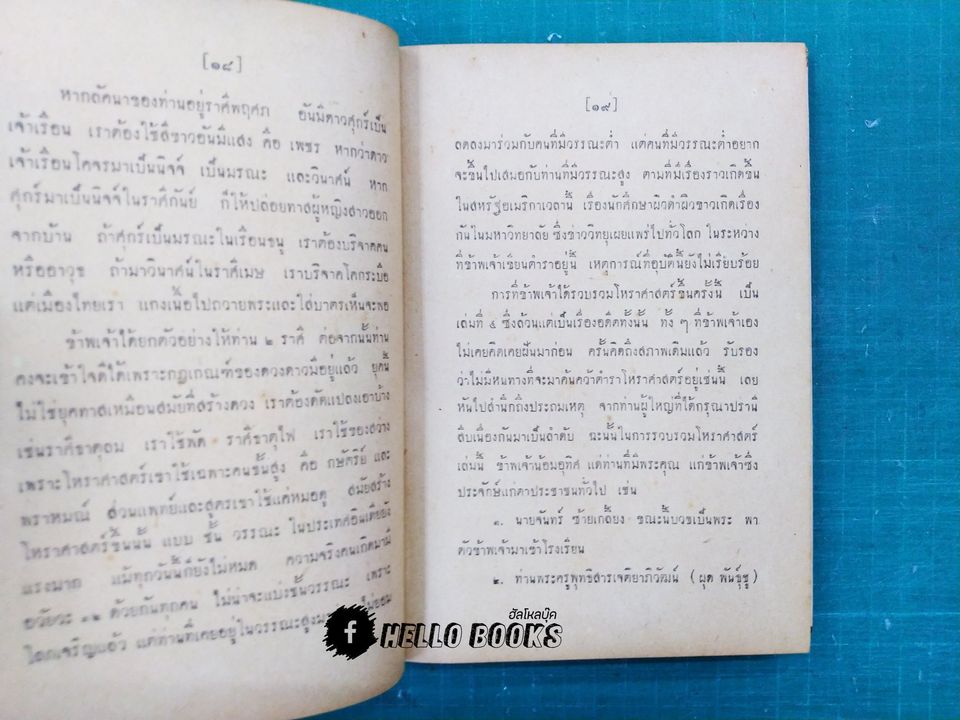 [๑๘]
หากลัคนาของท่านอยู่ราศีพฤศภ อันมีดาวศุกร์เป็น
เจ้าเรือน เราต้องใช้สีขาวอันมีแสง คือ เพชร หากว่าดาว
เจ้าเรือนโคจรมาเป็นนิจจ์ เป็นมรณะ และวินาศน์ หาก
ศุกร์มาเป็นนิจจ์ในราศีกันย์ ก็ให้ปล่อยทาสผู้หญิงสาวออก
จากบ้าน ถ้าศุกร์เป็นมรณะในเรือนธนู เราต้องบริจาคคน
หรืออาวุธ ถ้ามาวินาศน์ในราศีเมษ เราบริจาคโคกระบือ
แต่เมืองไทยเรา แกงเนื้อไปถวายพระและใส่บาตรเห็นจะพอ
ข้าพเจ้าได้ยกตัวอย่างให้ท่าน ๒ ราศี ต่อจากนั้นท่าน
คงจะเข้าใจดีได้เพราะกฎเกณฑ์ของดวงดาวมีอยู่แล้ว ยุคนี้
ไม่ใช่ยุคทาสเหมือนสมัยที่สร้างดวง เราต้องดัดแปลงเอาบ้าง
เช่นราศีธาตุลม เราใช้พัด ราศีธาตุไฟ เราใช้ของสว่าง
เพราะโหราศาสตร์เขาใช้เฉพาะคนชั้นสูง คือ กษัตริย์ และ
พราหมณ์ ส่วนแพทย์และสูตรเขาใช้แค่หมอดู สมัยสร้าง
โหราศาสตร์ขึ้นนั้น แบบ ชั้น วรรณะ ในประเทศอินเดียยัง
แรงมาก แม้ทุกวันนี้ก็ยังไม่หมด ความจริงคนเกิดมามี
อวัยวะ ๓๒ ด้วยกันทุกคน ไม่น่าจะแบ่งชั้นวรรณะ เพราะ
โลกเจริญแล้ว แต่ท่านที่เคยอยู่ในวรรณะสูงมา ไม่ยอม
[๑๙]
ลดลงมาร่วมกับคนที่มีวรรณะต่ำ แต่คนที่มีวรรณะต่ำอยาก
จะขึ้นไปเสมอกับท่านที่มีวรรณะสูง ตามที่มีเรื่องราวเกิดขึ้น
ในสหรัฐอเมริกาเวลานี้ เรื่องนักศึกษาผิวดำผิวขาวเกิดเรื่อง
กันในมหาวิทยาลัย ซึ่งข่าววิทยุเผยแพร่ไปทั่วโลก ในระหว่าง
ที่ข้าพเจ้าเขียนตำราอยู่นี้ เหตุการณ์ที่อุบัติขึ้นยังไม่เรียบร้อย
การที่ข้าพเจ้าได้รวบรวมโหราศาสตร์ขึ้นครั้งนี้ เป็น
เล่มที่ ๔ ซึ่งล้วนแต่เป็นเรื่องอดีตทั้งนั้น ทั้ง ๆ ที่ข้าพเจ้าเอง
ไม่เคยคิดเคยฝันมาก่อน ครั้นคิดถึงสภาพเดิมแล้ว รับรอง
ว่าไม่มีหนทางที่จะมาค้นคว้าตำราโหราศาสตร์อยู่เช่นนี้ เลย
หันไปสำนึกถึงประถมเหตุ จากท่านผู้ใหญ่ที่ได้กรุณาปรานี
สืบเนื่องกันมาเป็นลำดับ ฉะนั้นในการรวบรวมโหราศาสตร์
เล่มนี้ ข้าพเจ้าน้อมอุทิศ แด่ท่านที่มีพระคุณ แก่ข้าพเจ้าซึ่ง
ประจักษ์แก่ตาประชาชนทั่วไป เช่น
๑. นายจันทร์ ซ้ายเกลี้ยง ขณะนั้นบวชเป็นพระ พา
ตัวข้าพเจ้ามาเข้าโรงเรียน
๒. ท่านพระครูพุทธิสารเจติยาภิวัฒน์ (ผุด พันธุ์ชู)
ฮัลโหลบุ๊ค
HELLO BOOKS